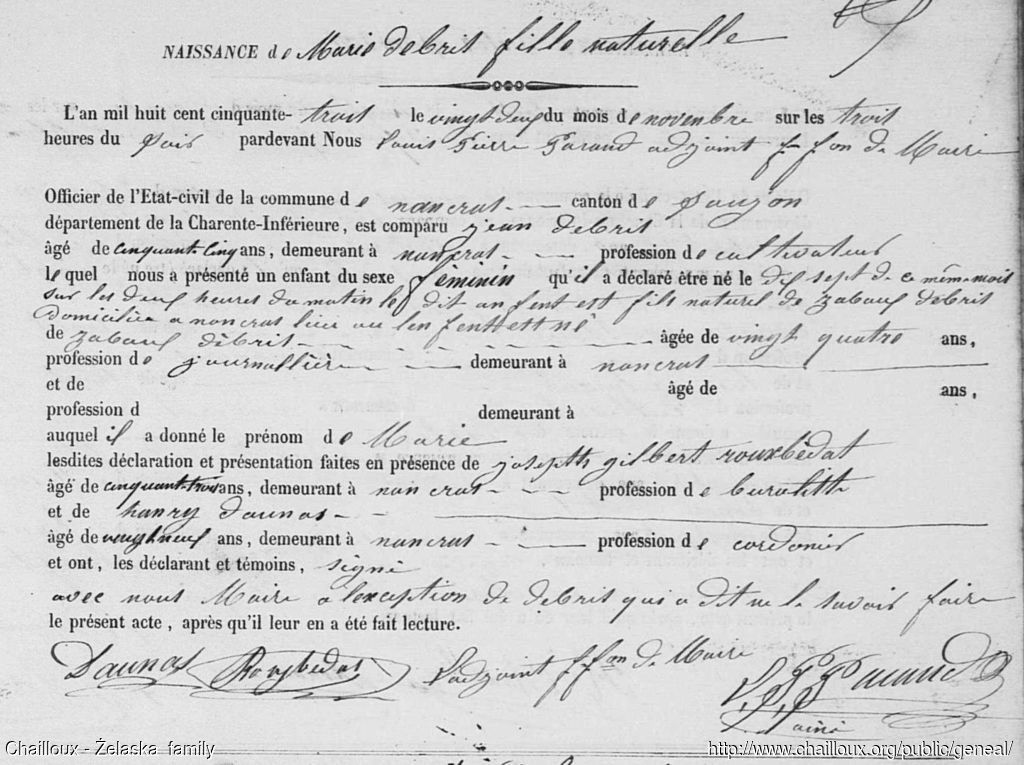 NAISSANCE de Marie debrit fille naturelle
L'an mil huit cent cinquante-trois le vingt deux du mois de novembre sur les trois
heures du soir pardevant Nous Louis Pierre Paraud adjoint f fon de Maire
Officier de l'Etat-civil de la commune de nancras canton de Saujon
département de la Charente-Inférieure, est comparu jean debrit
âgé de cinquant cinq ans, demeurant à nancras profession de cultivateur
le quel nous a présenté un enfant du sexe féminin qu'il a déclaré être né le dix sept de ce même mois
sur les deux heures du matin le dit enfent est fils naturel de debrit
domiciliée a nancras lieu ou lenfent est né
de débrit âgée de vingt quatre ans,
profession de journallière demeurant à nancras
et de âgé de ans,
profession d demeurant à
auquel il a donné le prénom de Marie
lesdites déclaration et présentation faites en présence de josepth gilbert rouxbédat
âgé de cinquant-trois ans, demeurant à nancras profession de buraliste
et de hanry daunas
âgé de vingt neuf ans, demeurant à nancras profession de cordonier
et ont, les déclarant et témoins, signé
avec nous Maire a lexception de debrit qui a dit ne le savoir faire
le présent acte, après qu'il leur en a été fait lecture.
Daunas Rouxbédat L'adjoint f fon de Maire L. P. Paraud
ainé
Chailloux - Żelaska family http://www.chailloux.org/public/geneal/